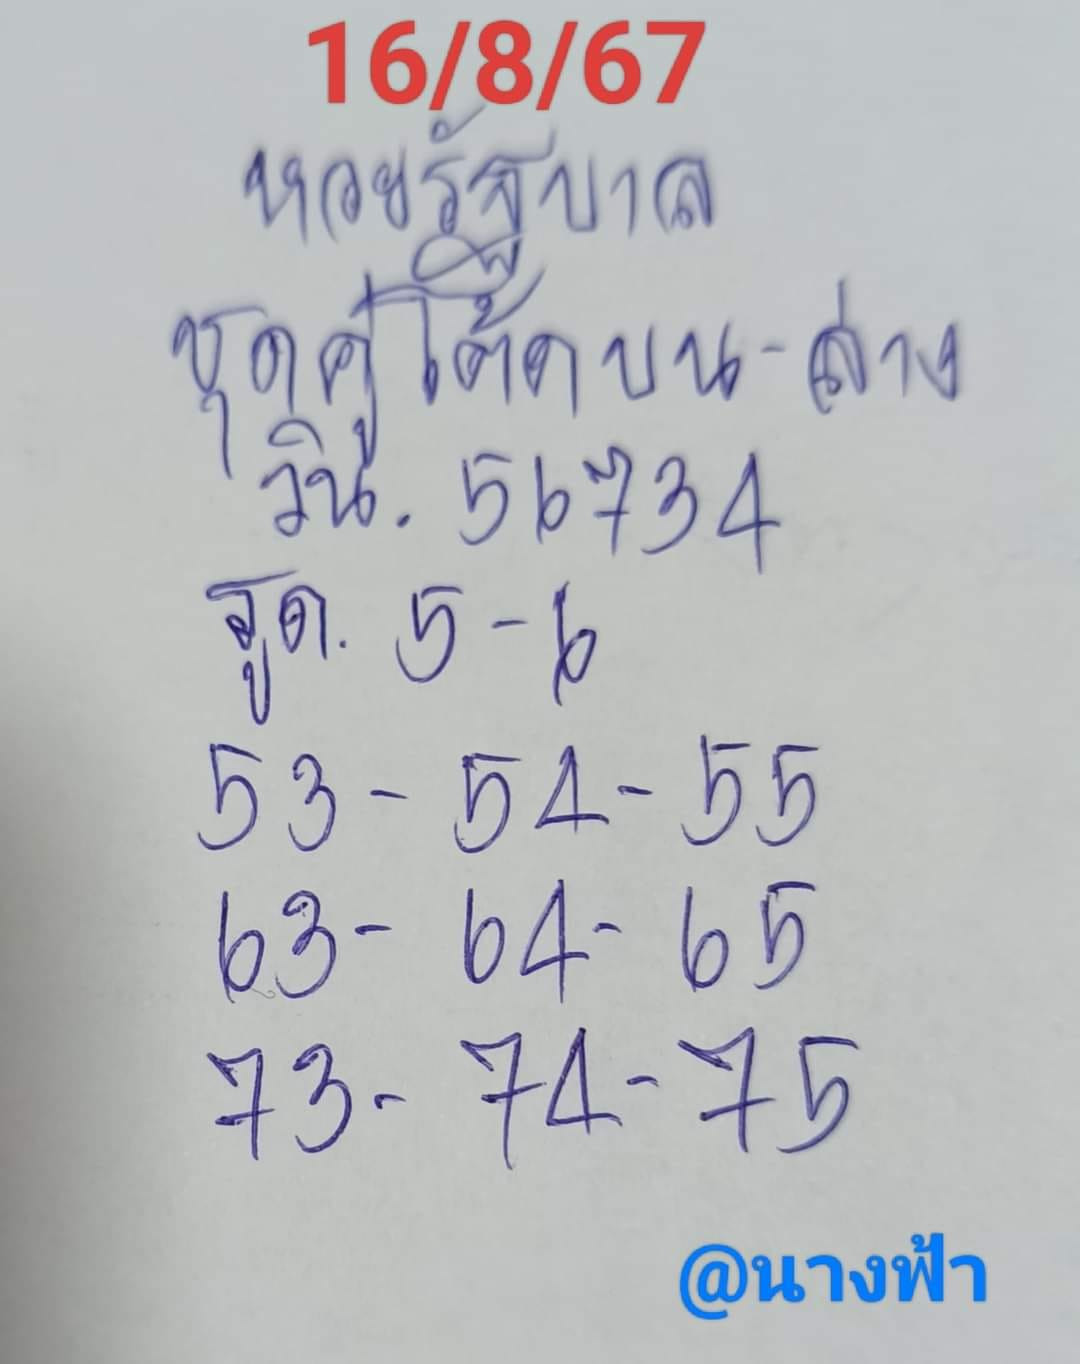 16/8/67
หวยรัฐบาล
ชุดคู่โต้ดบน-ล่าง
วิน. 56734
รูด. 5-6
53- 54- 55
63- 64- 65
73- 74- 75
@นางฟ้า